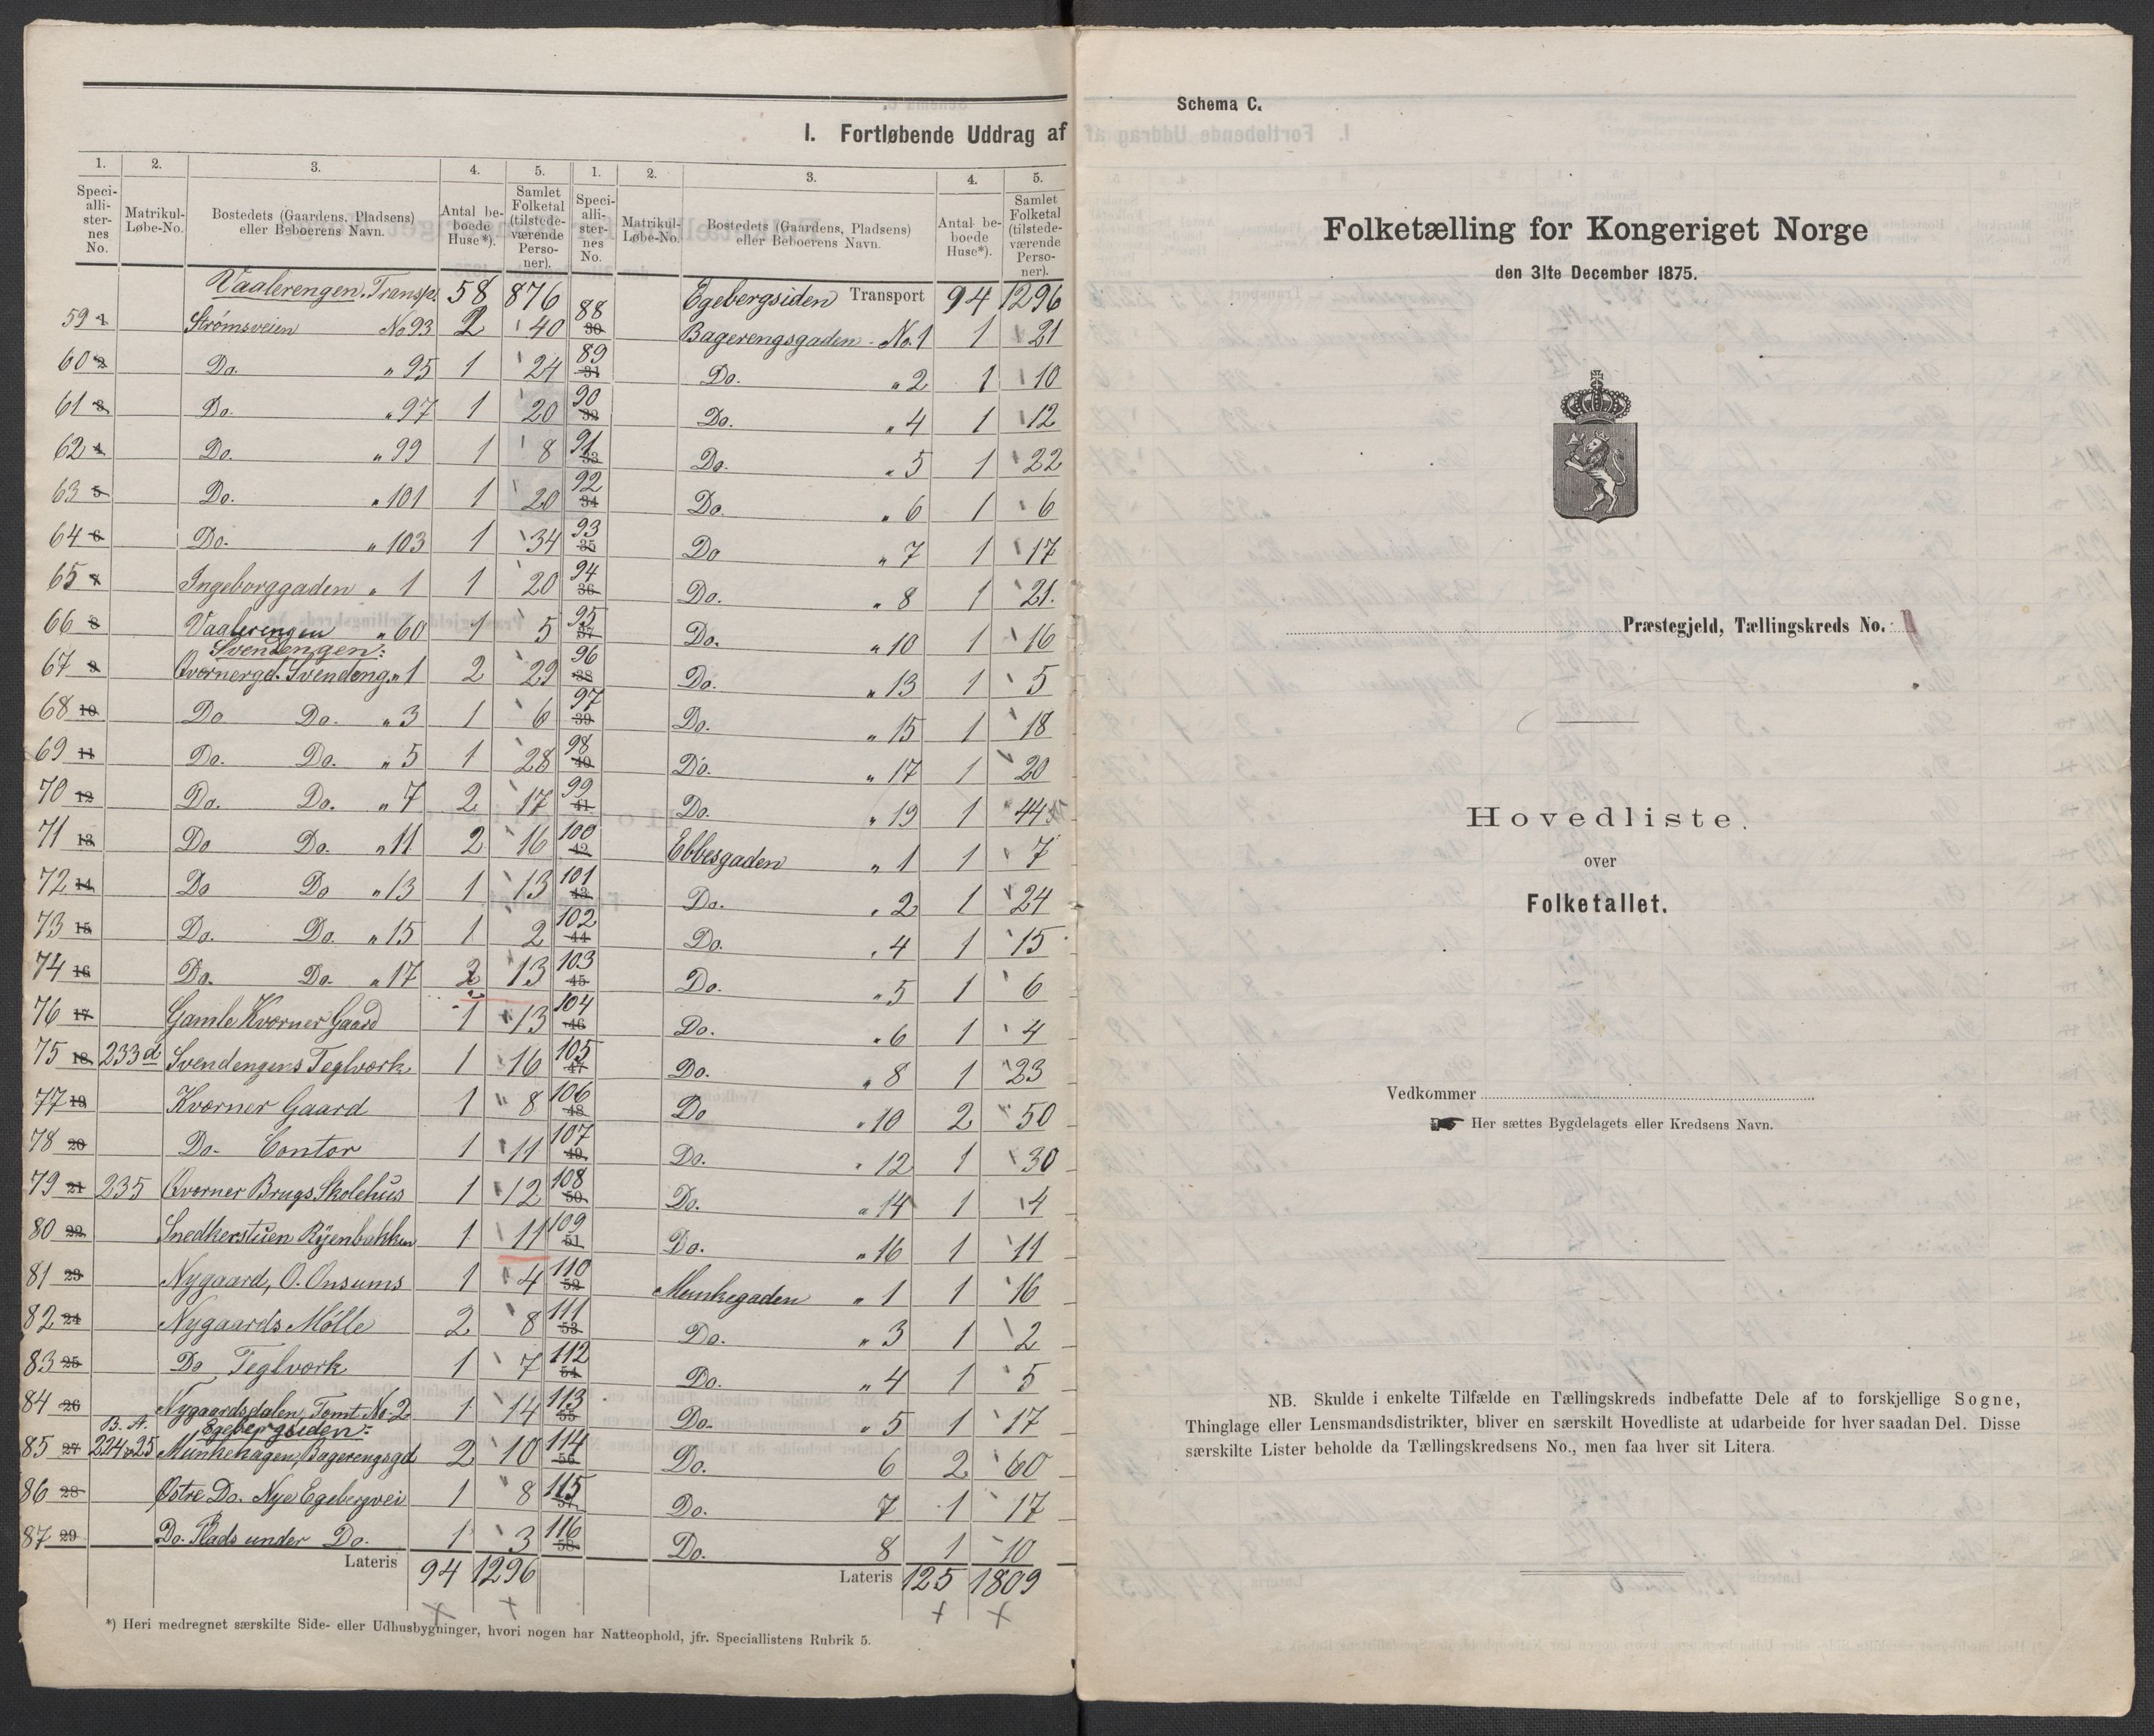 I. Fortløbende Uddrag af
1. 2. 3. 4. 5. 1. 2. 3. 4. 5.
Specialli-sternes No. Matrikul-Løbe-No. Bostedets (Gaardens, Pladsens) eller Beboerens Navn. Antal beboede Huse*). Samlet Folketal (tilstedeværende Personer).
Specialli-sternes No. Matrikul-Løbe-No. Bostedets (Gaardens, Pladsens) eller Beboerens Navn. Antal beboede Huse*). Samlet Folketal (tilstedeværende Personer).
Vaalerengen. Transp. 58 876
59 1 Strømsveien No 93 2 40
60 2 Do. " 95 1 24
61 3 Do. " 97 1 20
62 4 Do. " 99 1 8
63 5 Do. " 101 1 20
64 6 Do. " 103 1 34
65 7 Ingeborggaden " 1 1 20
66 8 Vaalerengen " 60 1 5
Svendengen:
67 9 Qværnergd. Svendeng. " 1 2 29
68 10 Do Do. " 3 1 6
69 11 Do. Do. " 5 1 28
70 12 Do. Do. " 7 2 17
71 13 Do Do. " 11 2 16
72 14 Do Do " 13 1 13
73 15 Do. Do. " 15 1 2
74 16 Do. Do. " 17 2 13
76 17 Gamle Kværner Gaard 1 13
75 18 233d Svendengens Teglværk 1 16
77 19 Kværner Gaard 1 8
78 20 Do. Contor 1 11
79 21 235 Qværner Brugs Skolehus 1 12
80 22 Snedkerstuen Ryenbakken 1 11
81 23 Nygaard, O. Onsums 1 4
82 24 Nygaards Mølle 2 8
83 25 Do Teglværk 1 7
84 26 Nygaardsdalen, Tomt No. 2 1 14
B. A. Egebergsiden:
85 27 224 25 Munkehagen, Bagerengsgd 2 10
86 28 Østre Do. Nye Egebergvei 1 8
87 29 Do. Plads under Do. 1 3
Lateris 94 1296
Egebergsiden Transport 94 1296
88 30 Bagerengsgaden No. 1 1 21
89 31 Do. " 2 1 10
90 32 Do. " 4 1 12
91 33 Do. " 5 1 22
92 34 Do " 6 1 6
93 35 Do " 7 1 17
94 36 Do. " 8 1 21.
95 37 Do. " 10 1 16
96 38 Do. " 13 1 5
97 39 Do. " 15 1 18
98 40 Do. " 17 1 20
99 41 Do. " 19 1 44
100 42 Ebbesgaden " 1 1 7
101 43 Do. " 2 1 24
102 44 Do. " 4 1 15
103 45 Do. " 5 1 6
104 46 Do. " 6 1 4
105 47 Do. " 8 1 23
106 48 Do " 10 2 50
107 49 Do. " 12 1 30
108 50 Do. " 14 1 4
109 51 Do. " 16 1 11
110 52 Munkegaden " 1 1 16
111 53 Do. " 3 1 2
112 54 Do. " 4 1 5
113 55 Do. " 5 1 17
114 56 Do. 6 2 60
115 57 Do. 7 1 17
116 58 Do. 8 1 10
Lateris 125 1809
*) Heri medregnet særskilte Side- eller Udhusbygninger, hvori nogen har Natteophold, jfr. Speciallistens Rubrik 5.
Schema C.
Folketælling for Kongeriget Norge
den 31te December 1875.
Præstegjeld, Tællingskreds No.
Hovedliste.
over
Folketallet.
Vedkommer
Her sættes Bygdelagets eller Kredsens Navn.
NB. Skulde i enkelte Tilfælde en Tællingskreds indbefatte Dele af to forskjellige Sogne,
Thinglage eller Lensmandsdistrikter, bliver en særskilt Hovedliste at udarbeide for hver saadan Del. Disse
særskilte Lister beholde da Tællingskredsens No., men faa hver sit Litera.